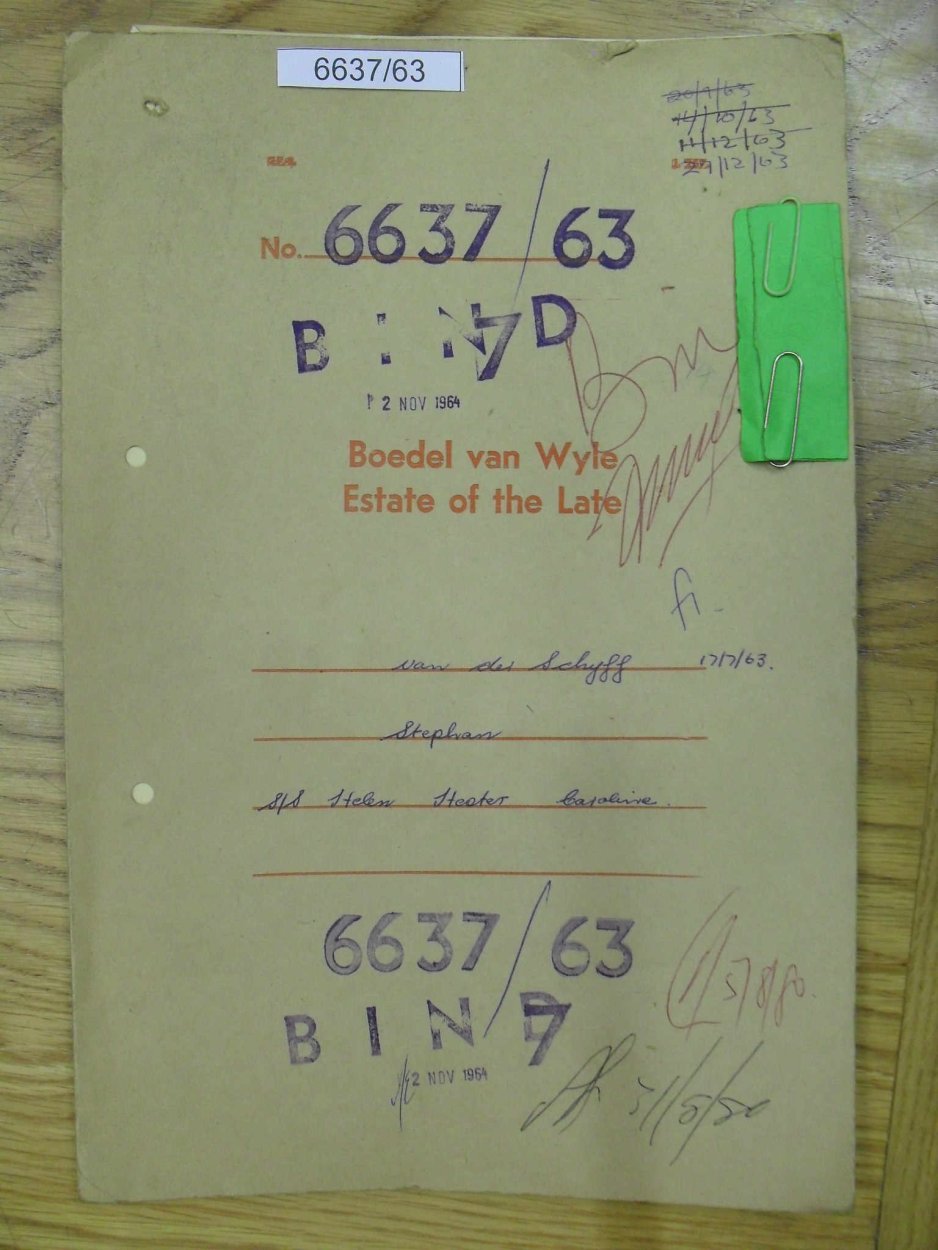 6637/63
20/9/63
14/10/63
11/12/63
29/12/63
No. 6637/63
BIND 7
12 NOV 1964
Boedel van Wyle
Estate of the Late
van der Schyff 17/7/63.
Stephan
S/S Helen Heater Caroline.
6637/63
BIND 7
12 NOV 1964
5/8/80.